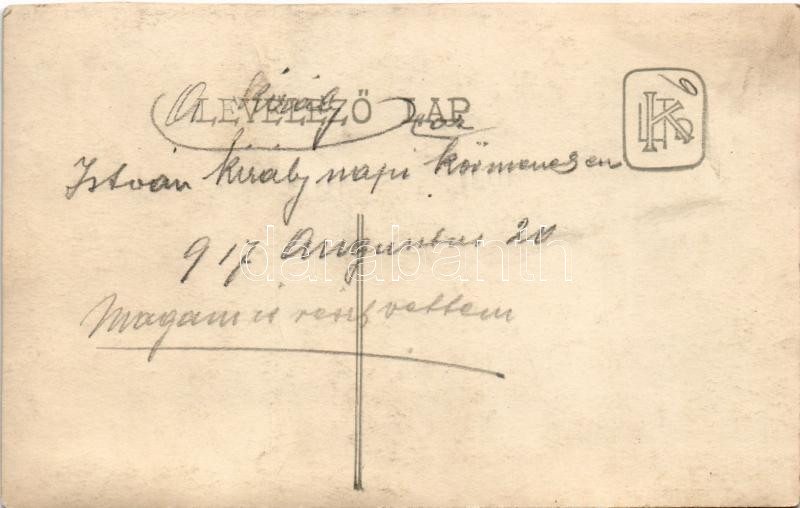 LEVELEZŐ LAP
A király
István király napi körmeneten
917 Augusztus 20
Magam is reszt vettem
darabanth